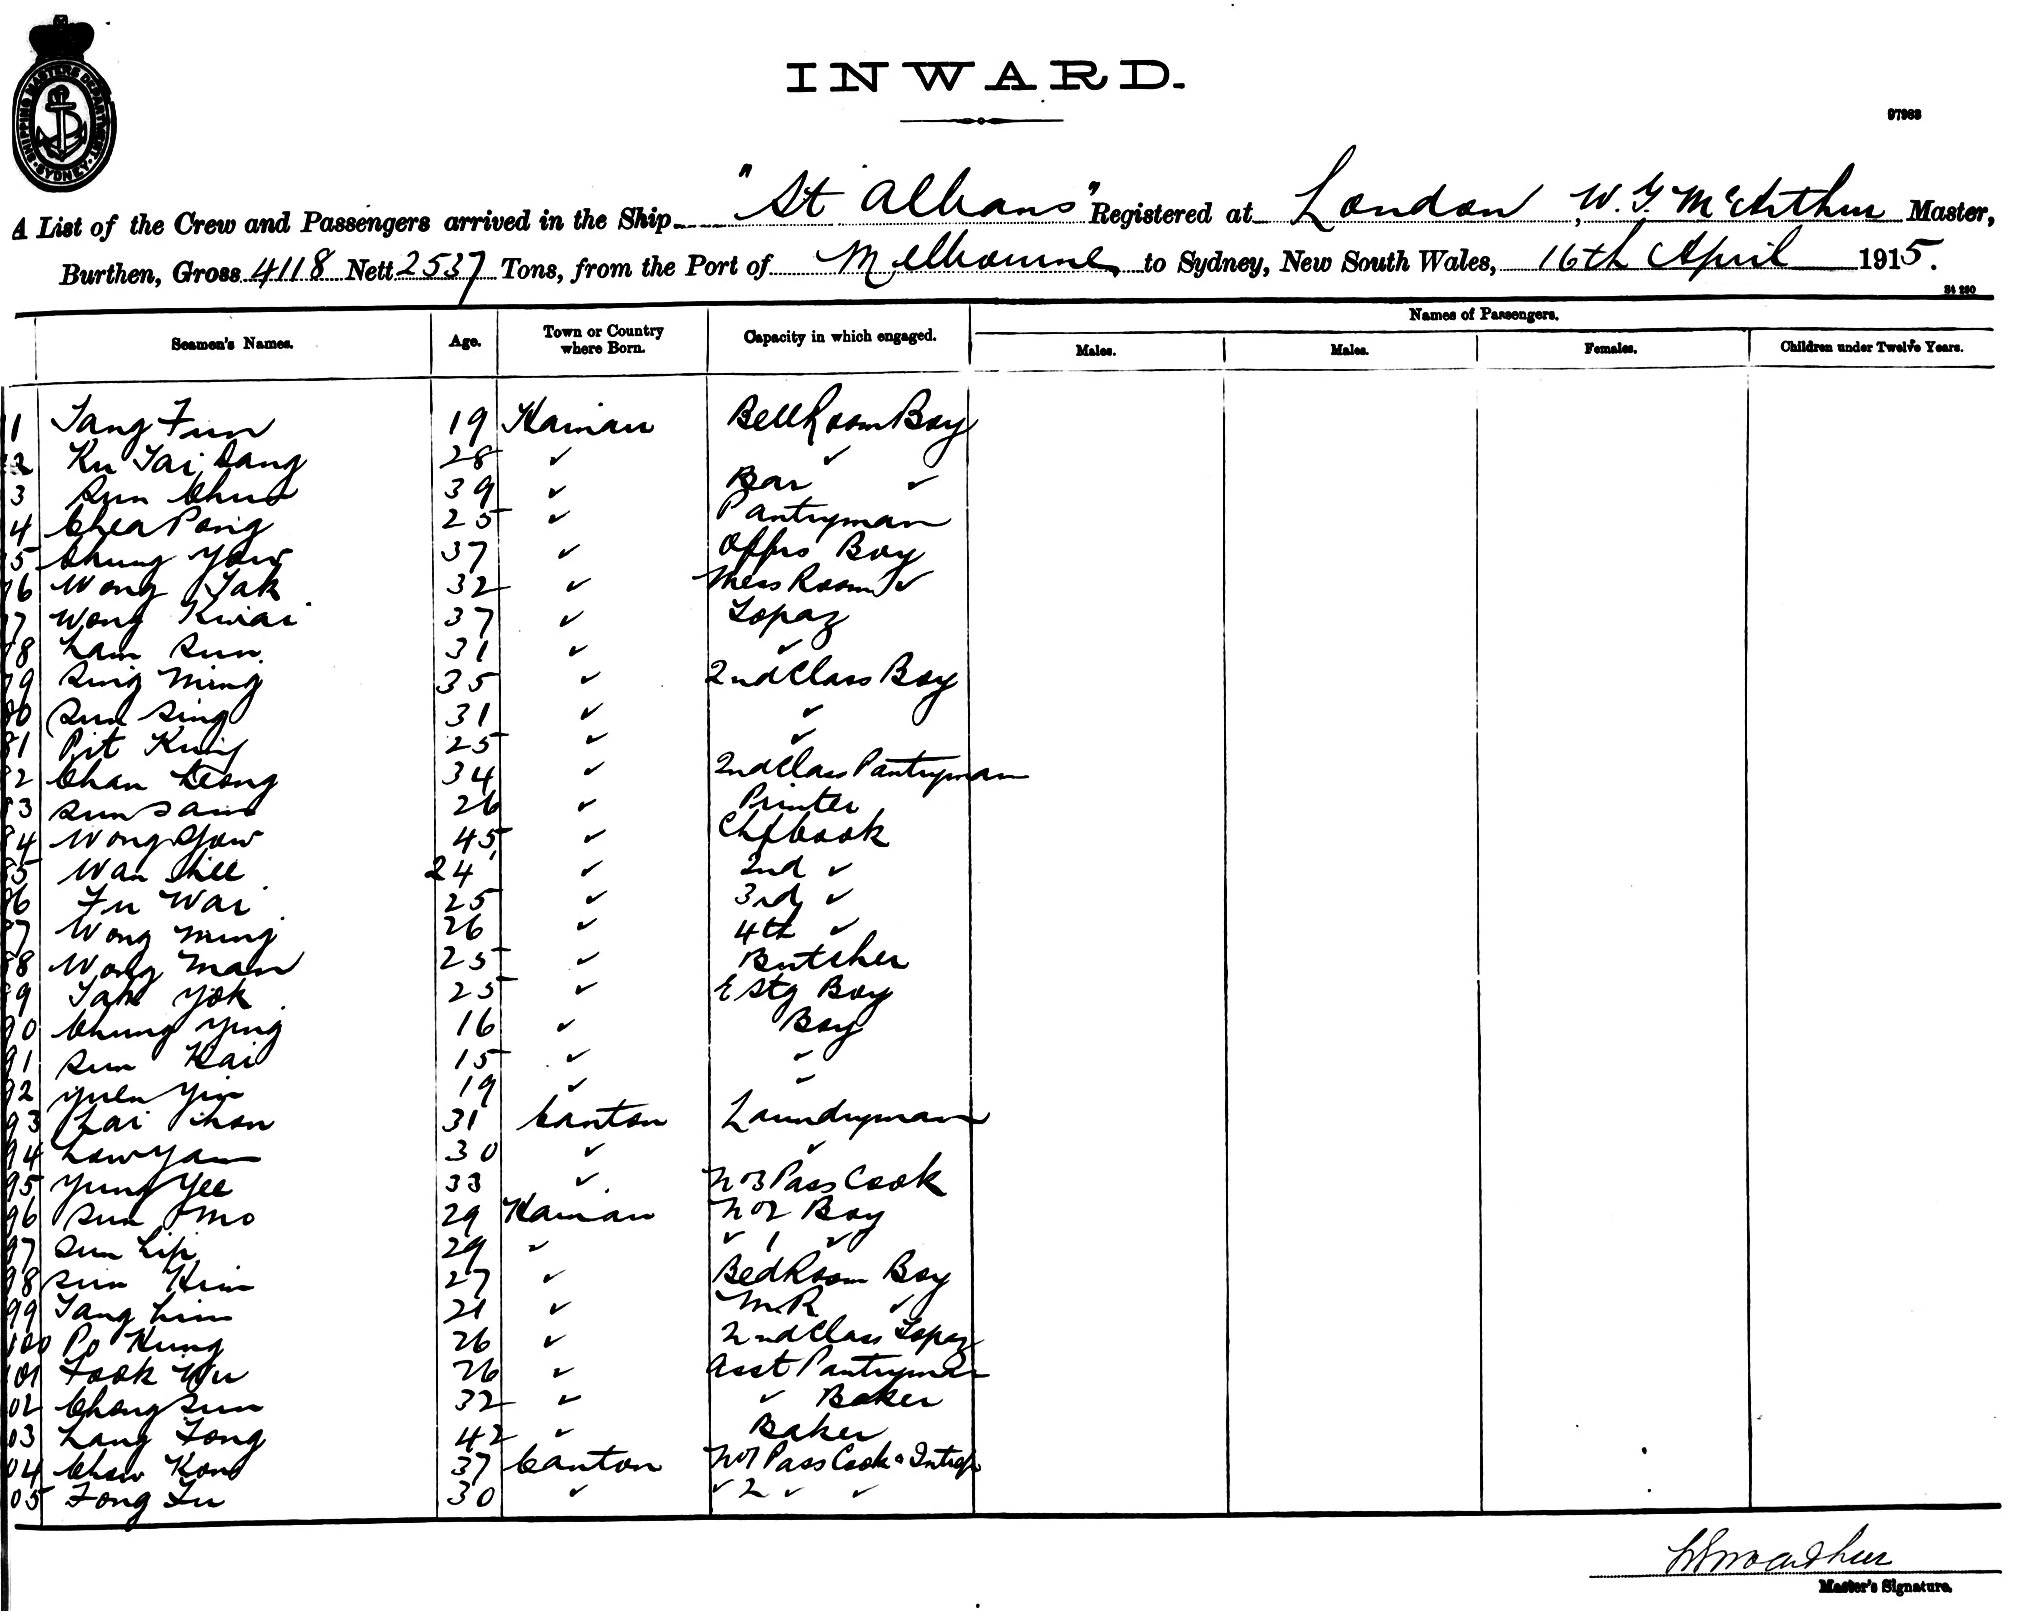 SHIPPING MASTERS DEPARTMENT · SYDNEY ·
INWARD.
97963
A List of the Crew and Passengers arrived in the Ship "St Albans" Registered at London, W. G. McArthur Master,
Burthen, Gross 4118 Nett 2537 Tons, from the Port of Melbourne to Sydney, New South Wales, 16th April 1915.
S4 280
Names of Passengers.
Seamen's Names. Age. Town or Country where Born. Capacity in which engaged. Males. Males. Females. Children under Twelve Years.
1 Tang Fun 19 Hainan Bell Room Boy
2 Ku Tai Sang 28 ✓ ✓
3 Sun Chun 39 ✓ Bar ✓
4 Chea Pong 25 ✓ Pantryman
5 Chung Yow 37 ✓ Offrs Boy
76 Wong Tak 32 ✓ Mess Room ✓
7 Wong Kwai 37 ✓ Topaz
78 Lam Sun 31 ✓ ✓
79 Sing Ming 35 ✓ 2nd Class Boy
80 Sun Sing 31 ✓ ✓
81 Pit Kung 25 ✓ ✓
82 Chan Leong 34 ✓ 2nd Class Pantryman
83 Sun Sam 26 ✓ Printer
84 Wong Yow 45 ✓ Chf Cook
85 Wan 24 ✓ 2nd ✓
86 Fu Wai 25 ✓ 3rd ✓
87 Wong Ming 26 ✓ 4th ✓
88 Wong Man 25 ✓ Butcher
89 Tah Yok 25 ✓ E Stg Boy
90 Chung Ying 16 ✓ Boy
91 Sun Kai 15 ✓ ✓
92 Yuen Yin 19 ✓ ✓
93 Lai Chon 31 Canton Laundryman
94 Low Yam 30 ✓ ✓
95 Yung Yee 33 ✓ No 3 Pass Cook
96 Sun Mo 29 Hainan No 2 Boy
97 Sun Lip 29 ✓ ✓ 1 ✓
98 Sun Him 27 ✓ Bed Room Boy
99 Tang Lim 21 ✓ M.R ✓
100 Po Kung 26 ✓ 2nd Class Topaz
101 Fook Wu 26 ✓ Asst Pantryman
02 Chong Sun 32 ✓ ✓ Baker
03 Lang Fong 42 ✓ Baker
04 Chow Kong 37 Canton No 1 Pass Cook & Intrp
05 Fong Fu 30 ✓ ✓ 2 ✓ ✓
W G McArthur
Master's Signature.